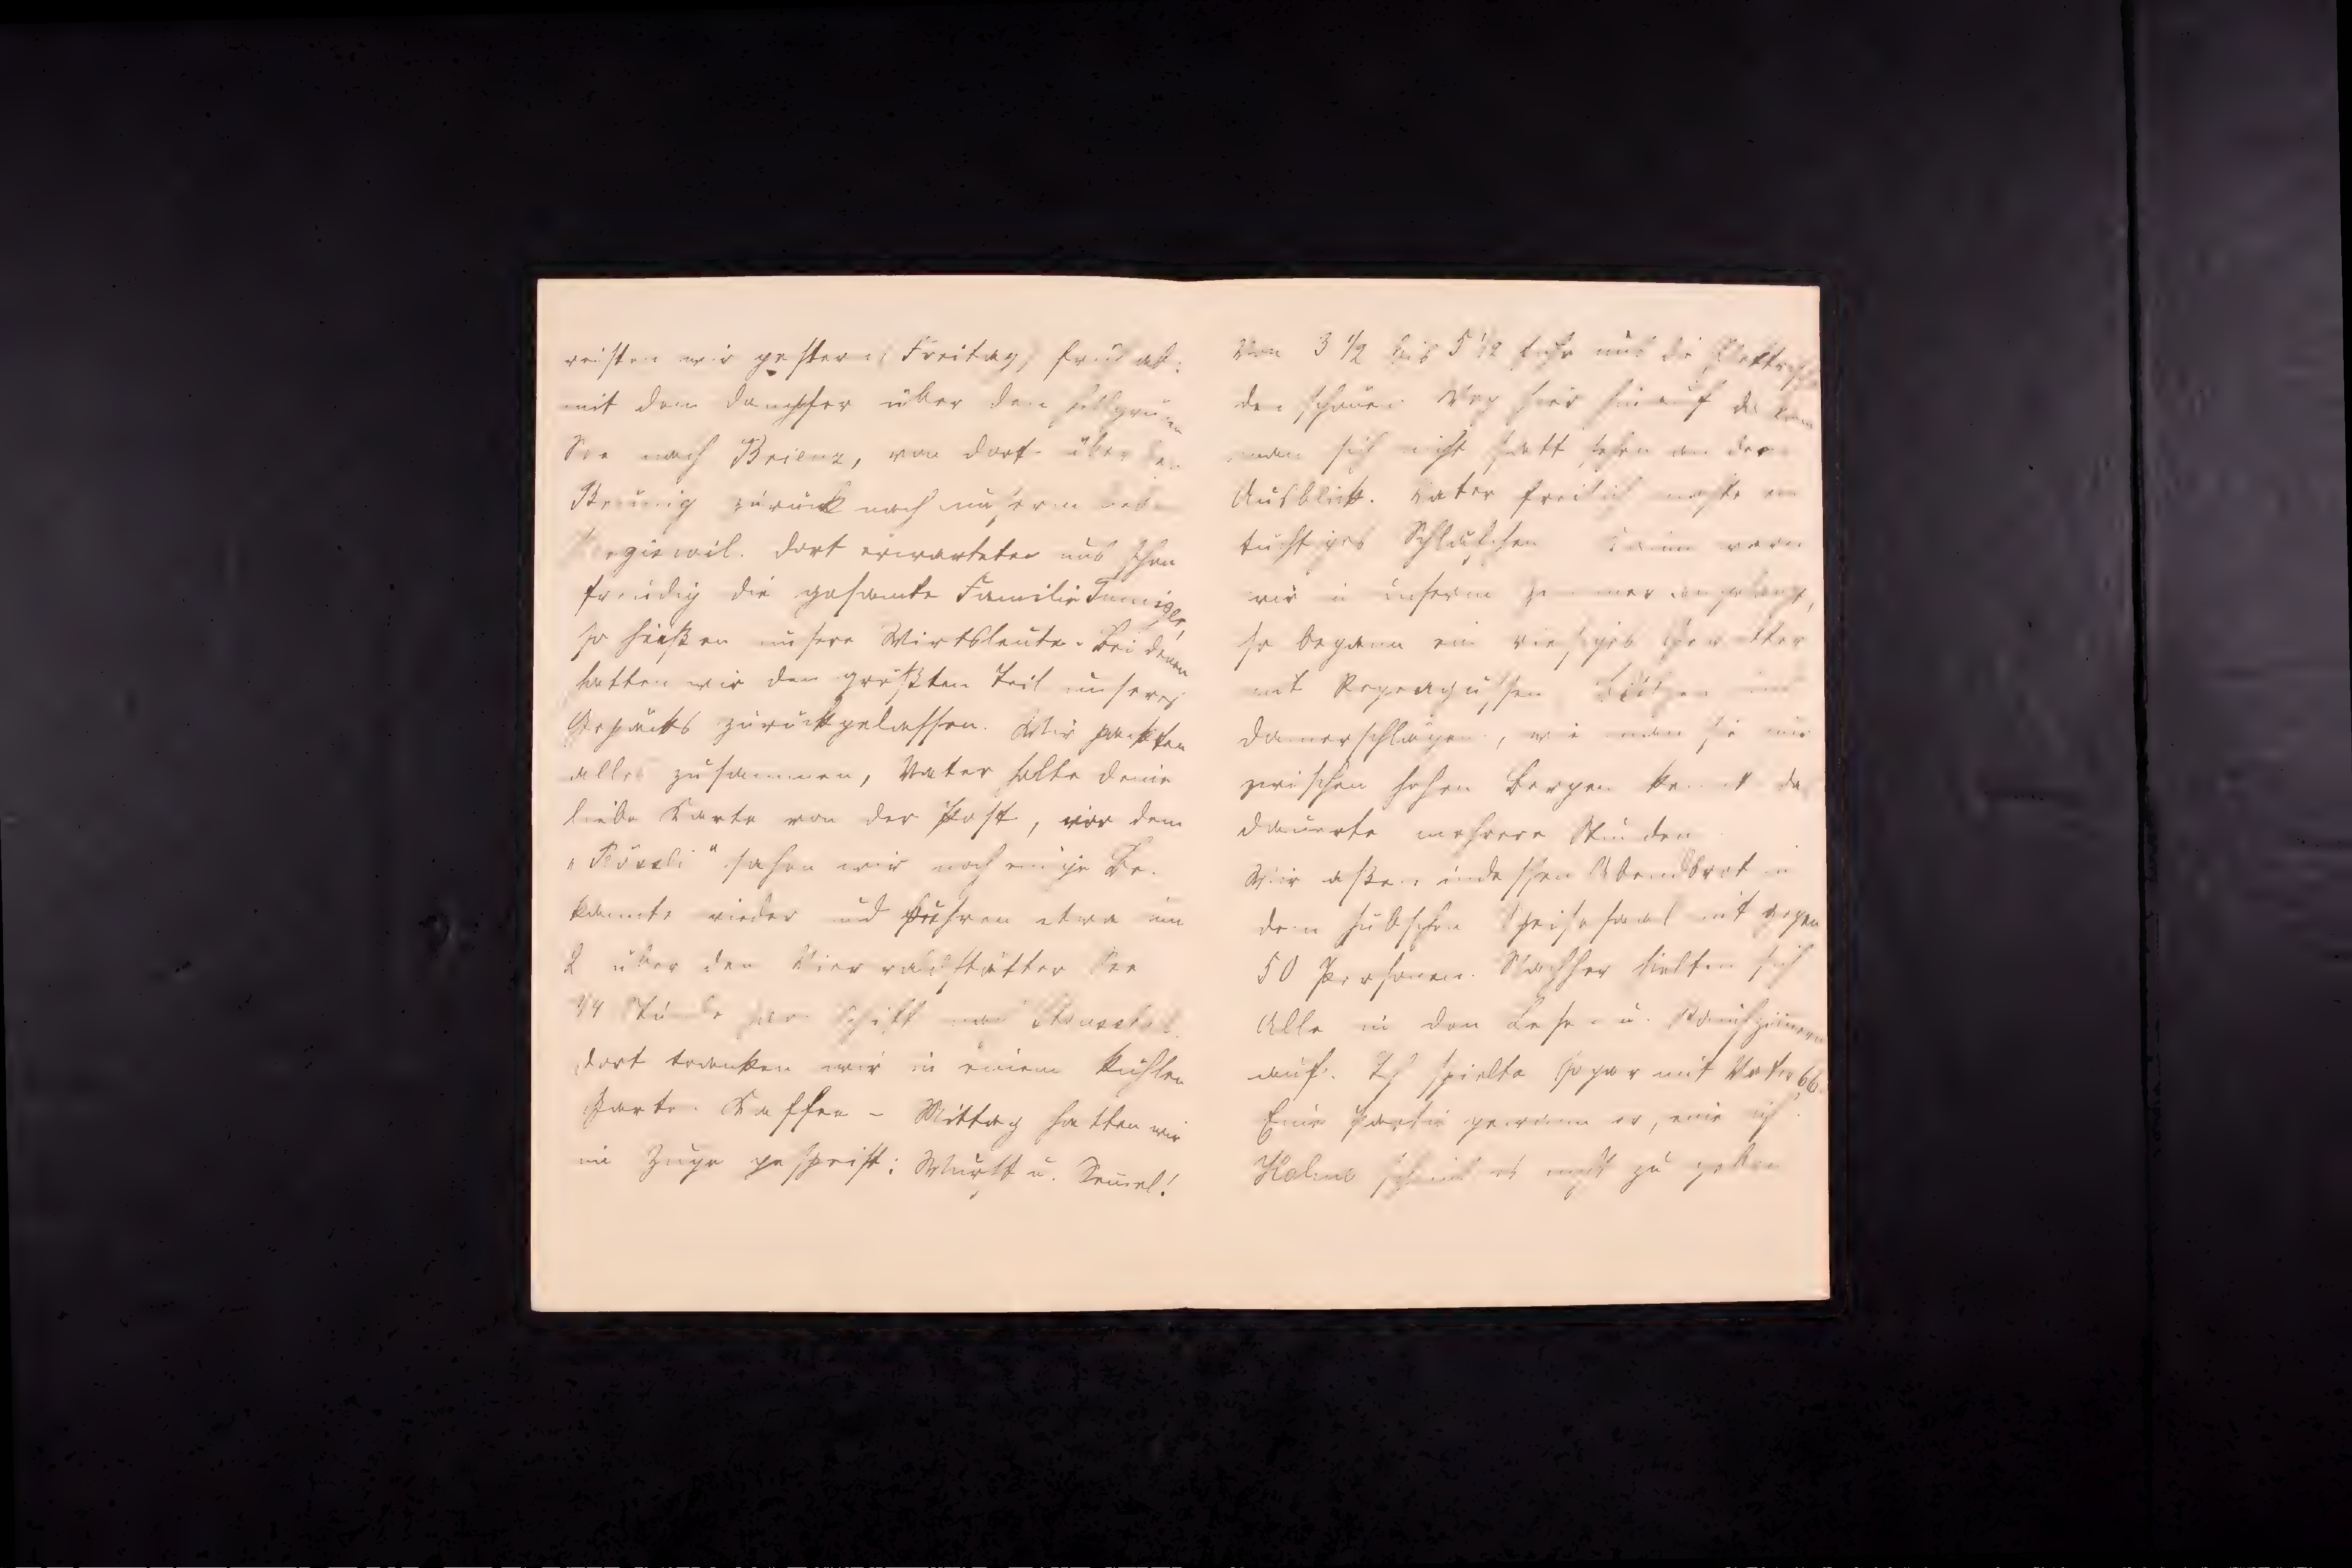 reisten wir gestern, Freitag, früh ab:
mit dem Dampfer über den hellgrünen
See nach Brienz, von dort über den
Brünig zurück nach unserm lieben
Giswil. Dort erwarteten uns schon
freudig die gesamte Familie
so hießen unsere Wirtsleute. Bei denen
hatten wir den größten Teil unseres
Gepäcks zurückgelassen. Wir packten
alles zusammen, Vater holte deine
liebe Karte von der Post, vor dem
"Rössli" sahen wir noch einige Be-
kannte wieder und fuhren etwa um
2 über den Vierwaldstätter See
3/4 Stunde per Schiff nach Stansstad.
Dort tranken wir in einem kühlen
Garten Kaffee – Mittag hatten wir
im Zuge gespeist: Wurst u. Semmel!
Von 3 1/2 bis 5 1/2 fuhr uns die Elektrische
den schönen Weg hier hinauf da kann
man sich nicht satt sehen an dem
Ausblick. Vater freilich machte ein
tüchtiges Schläfchen Kaum waren
wir in unserm Zimmer angelangt,
so begann ein riesiges Gewitter
mit Regengüssen Blitzen und
Donnerschlägen, wie man sie nur
zwischen hohen Bergen kennt das
dauerte mehrere Stunden
Wir aßen indessen Abendbrot in
dem hübschen Speisesaal mit gegen
50 Personen. Nachher hielten sich
Alle in den Lese- u. Rauchzimmern
auf. Ich spielte sogar mit Vater 66.
Eine Partie gewann er, eine ich.
scheint es nicht zu geben